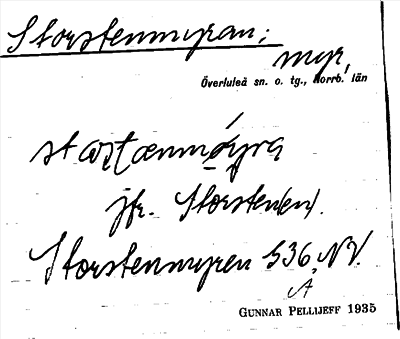 Storstenmyran;
myr,
Överluleå sn. o. tg., Norrb. län
jfr. Storsten(en).
Storstenmyren S36, NV.
A
GUNNAR PELLIJEFF 1935